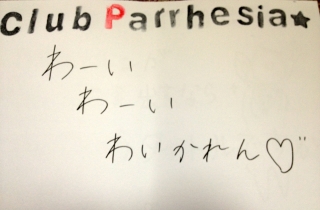 Club Parrhesia★
わーい
わーい
わいかれん♡"